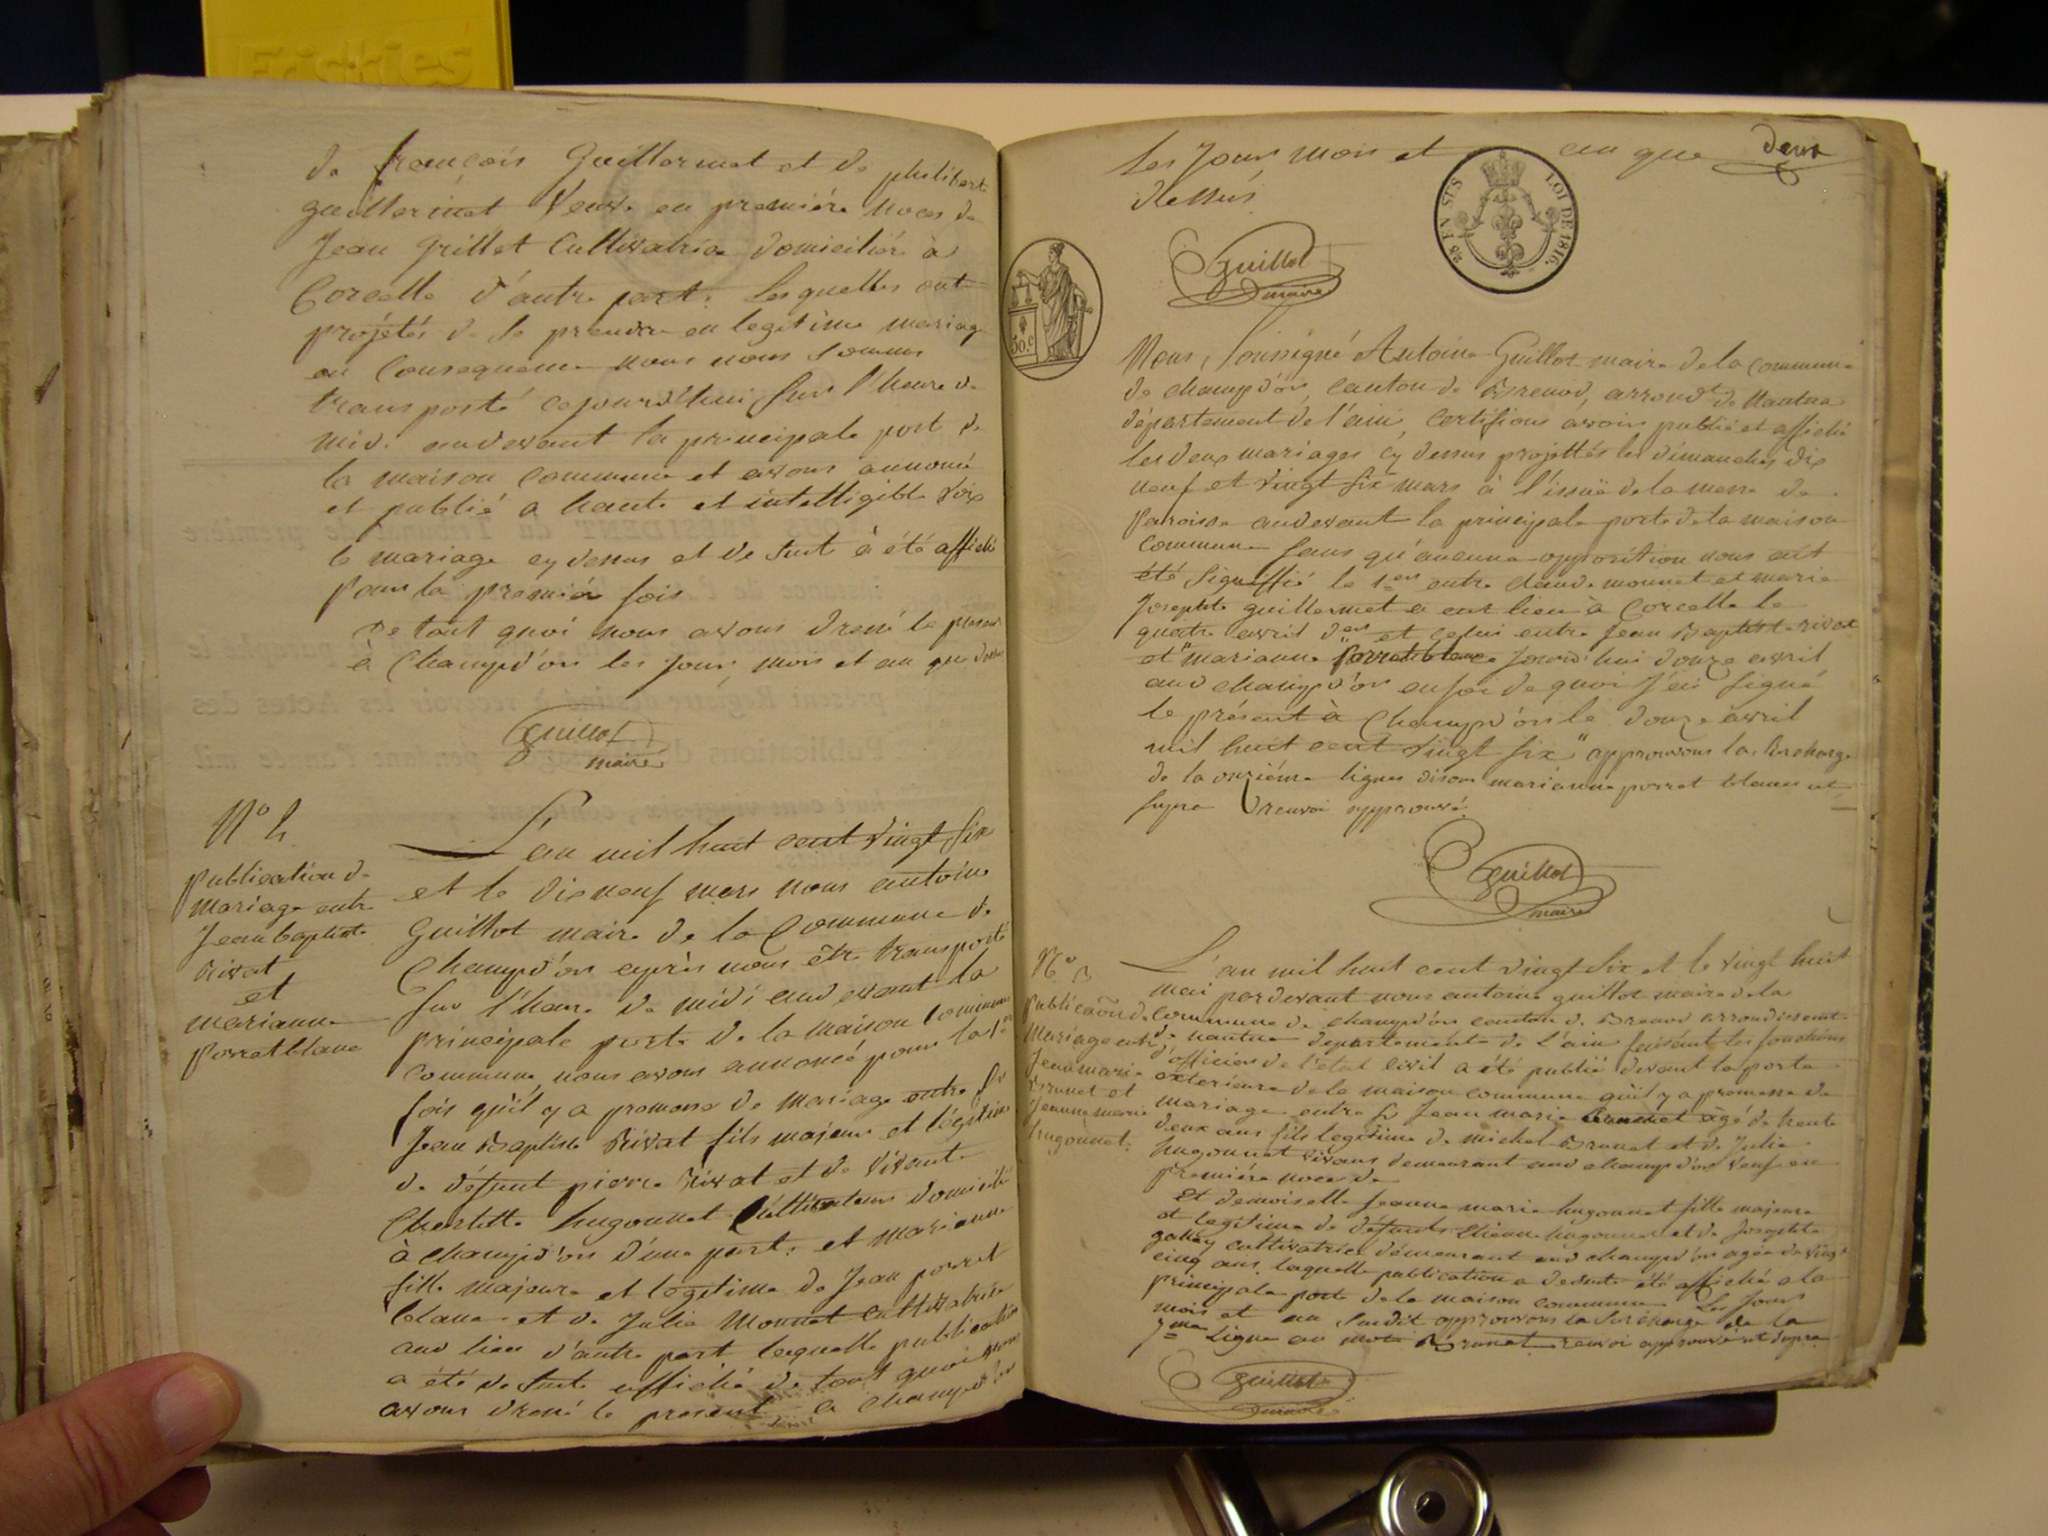 Friskies
de françois Guillermet et de philiberte
guillermet Veuve en première Noces de
Jean Grillet Cultivatrice domiciliée à
Corcelle d'autre part. Lesquelles ont
projétés de se prendre en legitime mariage
en Consequence nous nous sommes
transporté cejourd'hui sur l'heure de
midi audevant la principale porte de
la maison commune et avons annoncé
et publié a haute et intelligible voix
le mariage cy dessus et de suite à été affiché
pour la premier fois
De tout quoi nous avons dressé le présent
à Champd'or les jour, mois et an que dessus
Guillot
maire
N° 2
publication de
mariage entre
Jean baptiste
Rivat
et
marianne
porretblanc
L'an mil huit cent vingt six
et le dixneuf mars nous antoine
Guillot maire de la Commune de
Champd'or après nous être transporté
sur l'heure de midi audevant la
principale porte de la maison commune
commune, nous avons annoncé pour la 1ere
fois qu'il y a promesse de mariage entre Sr
Jean Baptiste Rivat fils majeur et légitime
de défunt pierre Rivat et de vivante
Charlotte hugonnet Cultivateur domicilié
à Champd'or d'une part; et marianne
fille majeure et legitime de Jean porret
blanc et de Julie Monnet cultivatrice
aud lieu d'autre part lequelle publication
a été de suite affiché de tout quoi nous
avons dressé le présent à Champd'or
Les Jour mois et an que deux
dessus
25 EN SUS LOI DE 1816.
50.c
Guillot
maire
Nous, soussigné Antoine Guillot maire de la commune
de champd'or, canton de Brenod, arrondt de Nantua
département de l'ain, certifions avoir publié et affiché
les deux mariages cy dessus projettés les dimanches dix
neuf et vingt six mars à l'issuë de la messe de
paroisse audevant la principale porte de la maison
commune sans qu'aucunne opposition nous ait
été signiffié le 1er entre claude monnet et marie
Josephte guillermet a eut lieu à Corcelle le
quatre avril der et celui entre Jean Baptiste rivat
et "marianne porretblanc Jourd'hui douze avril
aud champd'or en foi de quoi J'ai signé
le présent à Champd'or le douze avril
mil huit cent vingt six" approuvons la surcharge
de la onziéme lignes disons marianne porret blanc ut
supra renvoi approuvé
Guillot
maire
N° 3
publicaõn de
mariage entre
Jean marie
Brunet et
Jeanne marie
hugonnet.
L'an mil huit cent vingt six et le vingt huit
mai pardevant nous antoine guillot maire de la
commune de champd'or canton de Brenod arrondissemt
de nantua departement de L'ain faisant les fonctions
d'officier de l'état civil a été publié devant la porte
exterieure de la maison commune qu'il y a promesse de
mariage entre Sr Jean marie Brunet âgé de trente
deux ans fils legitime de michel Brunet et de Julie
hugonnet vivans demeurant aud champd'or veuf en
première noce de
Et demoiselle Jeanne marie hugonnet fille majeure
et legitime de défunts Etienne hugonnet et de Josephte
gallay cultivatrice demeurant aud champd'or agée de vingt
cinq ans laquelle publication a desuite été affiché a la
principale porte de la maison commune Les Jours
mois et an susdit approuvons la surcharge de la
7me Ligne au mot Brunet renvoi approuvé ut supra
Guillot
maire